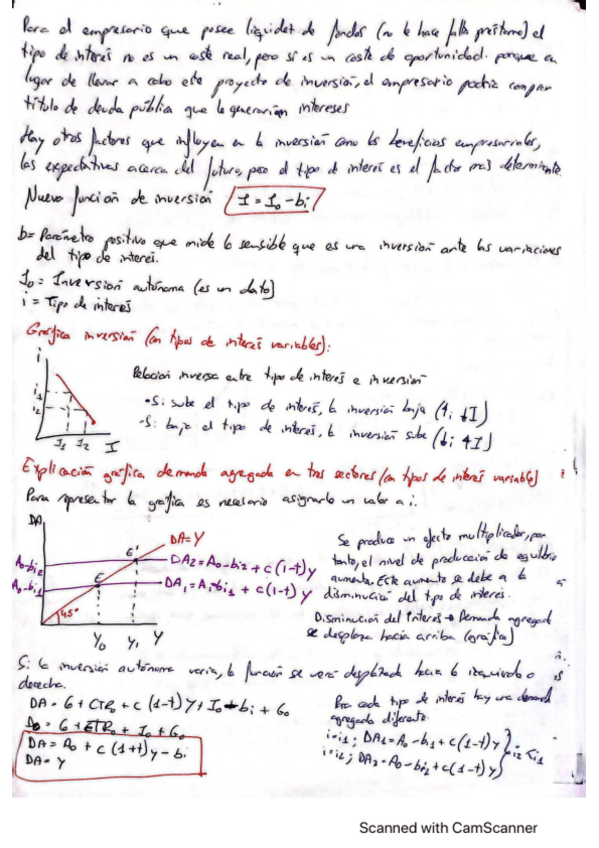 Para el empresario que posee liquidet de fondos (no le hace falta préstamo) el
tipo de interés no es un coste real, pero si es un coste de oportunidad. porque en
lugar de llevar a cabo este proyecto de inversión, el empresario podría comprar
título de deuda pública que le generarían intereses
Hay otros factores que influyen en la inversión como los beneficios empresariales,
las expectativas acerca del futuro, pero el tipo de interés es el factor mas determinante.
Nueva función de inversión I = I₀ - bi
b= Parámetro positivo que mide lo sensible que es una inversión ante las variaciones
del tipo de interés.
I₀ = Inversión autónoma (es un dato)
i = Tipo de interés
Gráfica inversión (con tipos de interés variables):
i
i₁
i₂
I₁ I₂ I
Relación inversa entre tipo de interés e inversión
• Si sube el tipo de interés, la inversión baja (↑i ↓I)
- Si baja el tipo de interés, la inversión sube (↓i ↑I)
Explicación gráfica demanda agregada en tres sectores (con tipos de interés variable)
Para representar la gráfica es necesario asignarle un valor a i.
DA
DA=Y
A₀-bi₂
E'
DA₂=A₀-bi₂ + c(1-t)y
A₀-bi₁
E
DA₁=A₀-bi₁ + c(1-t)y
45°
Y₀ Y₁ Y
Se produce un efecto multiplicador, por
tanto, el nivel de producción de equilibrio
aumenta. Este aumento se debe a la
disminución del tipo de interés.
Disminución del interés → Demanda agregada
se desplaza hacia arriba (gráfica)
Si la inversión autónoma varia, la función se verá desplazada hacia la izquierda o
derecha.
DA = G + CTR₀ + c(1-t)Y + I₀ - bi + G₀
= G + CTR₀ + I₀ + G₀
DA = A₀ + c(1+t)y - bi
DA = Y
Para cada tipo de interés hay una demanda
agregada diferente.
i=i₁; DA₁=A₀-bi₁+c(1-t)y
i=i₂; DA₂=A₀-bi₂+c(1-t)y
i₂<i₁
Scanned with CamScanner